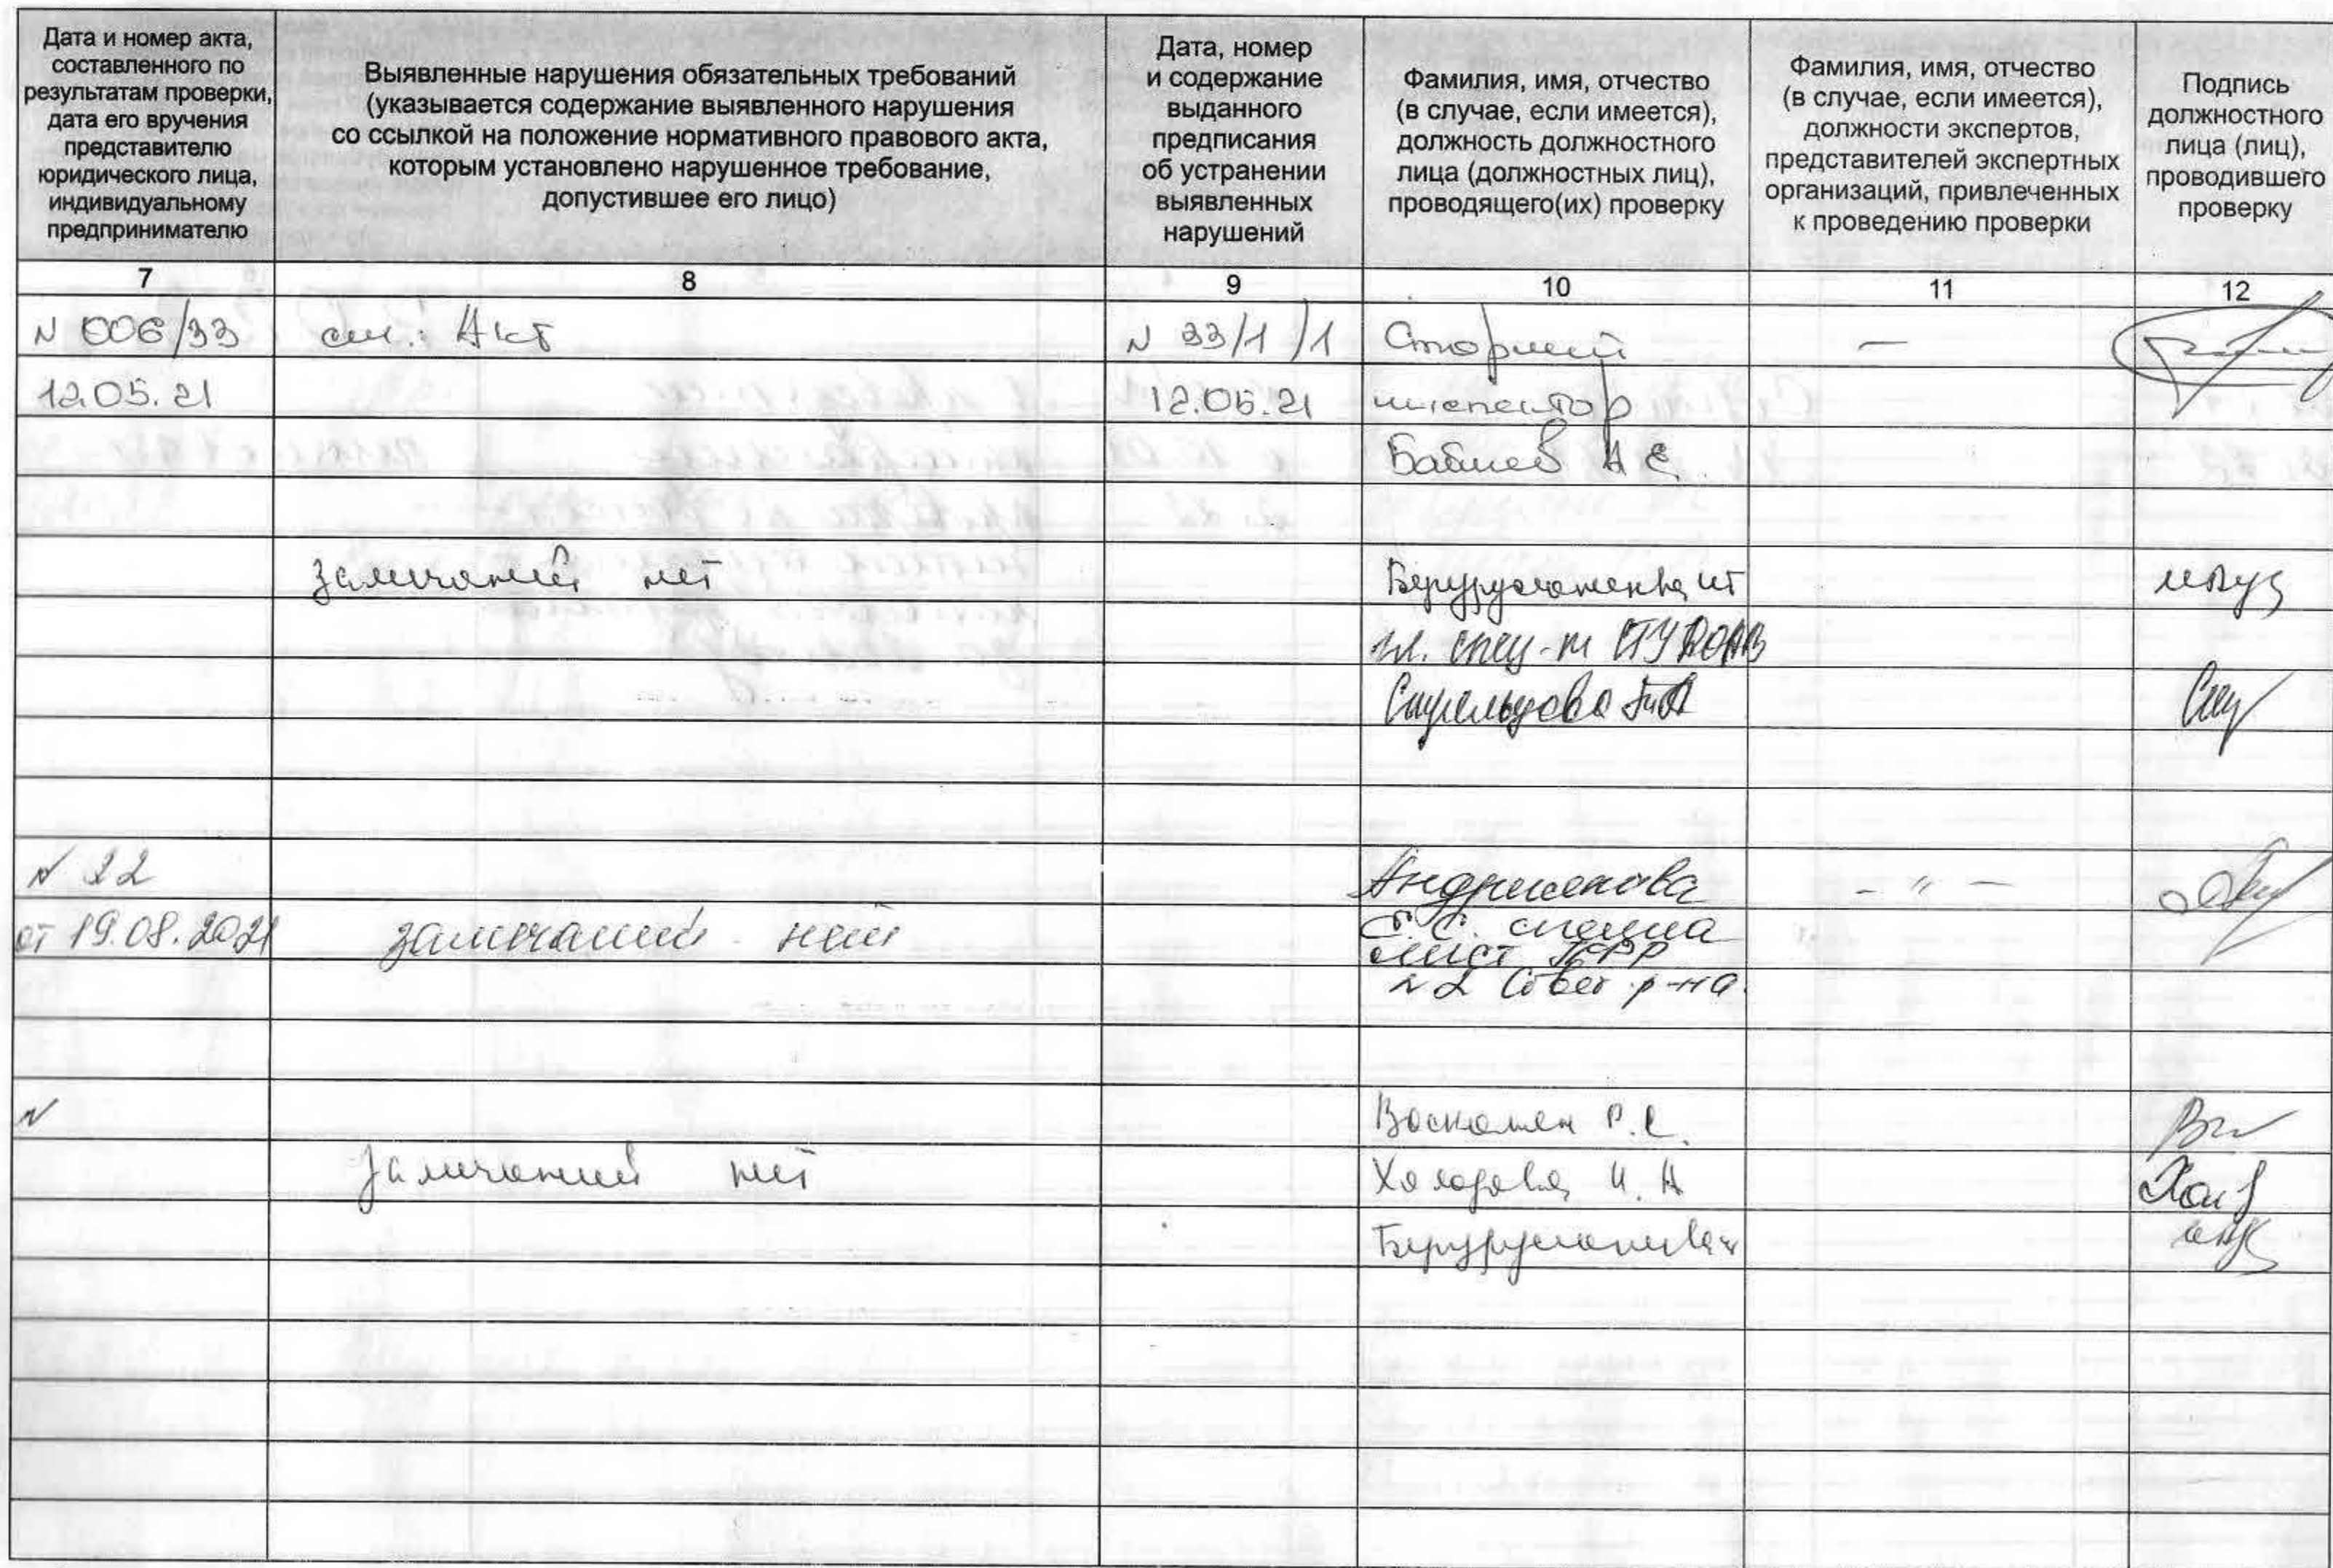 Дата и номер акта,
составленного по
результатам проверки,
дата его вручения
представителю
юридического лица,
индивидуальному
предпринимателю
Выявленные нарушения обязательных требований
(указывается содержание выявленного нарушения
со ссылкой на положение нормативного правового акта,
которым установлено нарушенное требование,
допустившее его лицо)
Дата, номер
и содержание
выданного
предписания
об устранении
выявленных
нарушений
Фамилия, имя, отчество
(в случае, если имеется),
должность должностного
лица (должностных лиц),
проводящего(их) проверку
Фамилия, имя, отчество
(в случае, если имеется),
должности экспертов,
представителей экспертных
организаций, привлеченных
к проведению проверки
Подпись
должностного
лица (лиц),
проводившего
проверку
7 8 9 10 11 12
N 006/33 см.: Акт N 33/1/1 Старший —
12.05.21 12.05.21 инспектор
Бабиев А Е.
Замечаний нет
гл. спец-т
Стрельцова
N 22 - " -
от 19.08.2021 замечаний нет С. С. специа
лист
N 2 Совет р-на.
N
Замечаний нет Холодова И. А